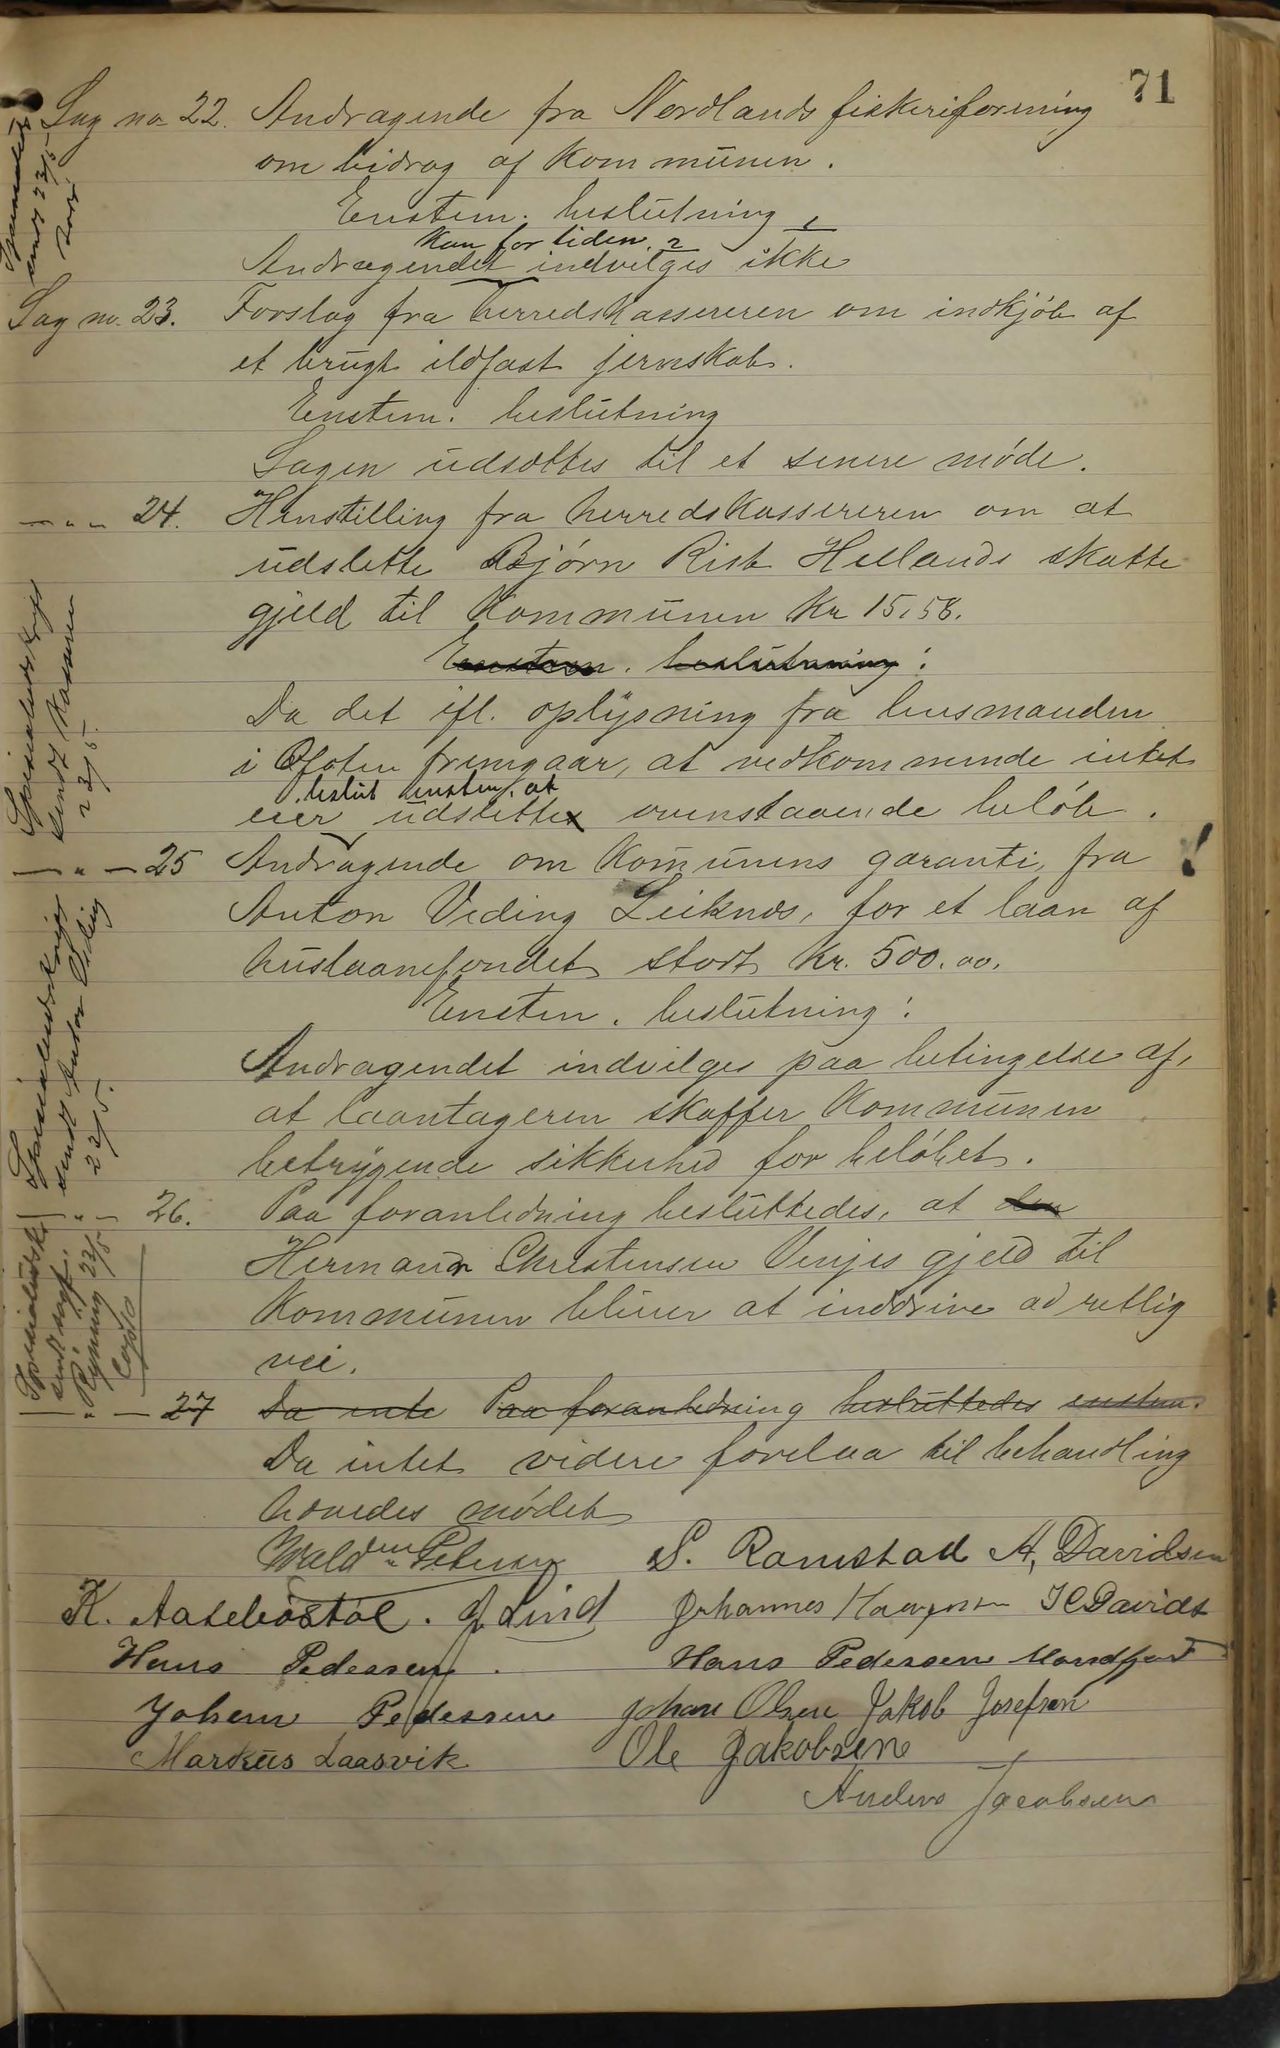 71
Sag no 22. Andragende fra Nordlands fiskeriforening
om bidrag af kommunen.
Enstem. beslutning
kan for tiden
Andragendet indvilges ikke
Sag no. 23. Forslag fra herredskassereren om indkjøb af
et brugt ildfast jernskab.
Enstem. beslutning
Sagen udsættes til et senere møde.
— „ — 24. Henstilling fra herredskassereren om at
udslette Bjørn Rist Hellands skatte
gjeld til kommunen kr 15,58.
Enstem. beslutning:
Da det ifl. oplysning fra lensmanden
i Ofoten fremgaar, at vedkommende intet
beslut enstem. at
eier udslettes ovenstaaende beløb.
— „ — 25 Andragende om kommunens garanti, fra
Anton Veding Leiknes, for et laan af
huslaanefondet stort kr. 500.00.
Enstem. beslutning:
Andragendet indvilges paa betingelse af,
at laantageren skaffer kommunen
betryggende sikkerhed for beløbet.
— „ — 26. Paa foranledning besluttedes, at den
Hermann Christensen Vinjes gjeld til
kommunen bliver at inddrive ad retlig
vei.
— „ — 27 Da inte Paa foranledning besluttedes enstem.
Da intet videre forelaa til behandling
hævedes mødet
S. Ramstad A. Davidsen
K. Aaseb
Lind Johannes
Hans Pedersen. Hans Pedersen
Johan Pedersen Johan Olsen Jakob Josefsen
Markus Laasvik Ole Jakobsen
Anders Jacobsen
sendt Kassereren
23/5.
sendt Anton Veding
23/5.